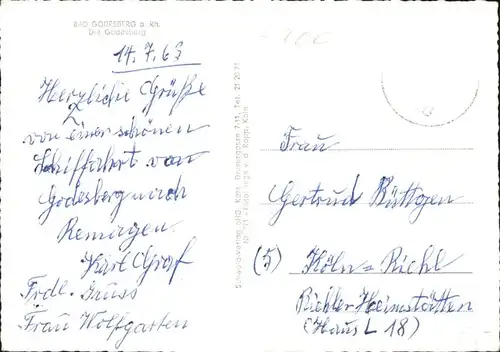 BAD GODESBERG a. Rh.
Die Godesburg
14.7.63
Herzliche Grüße
von einer schönen
Schiffahrt von
Godesberg nach
Remagen.
Karl Graf
Frdl. Gruss
Frau Wolfgarten
Frau
Gertrud Büttgen
(5) Köln=Riehl
Riehler Heimstätten
(Haus L 18)